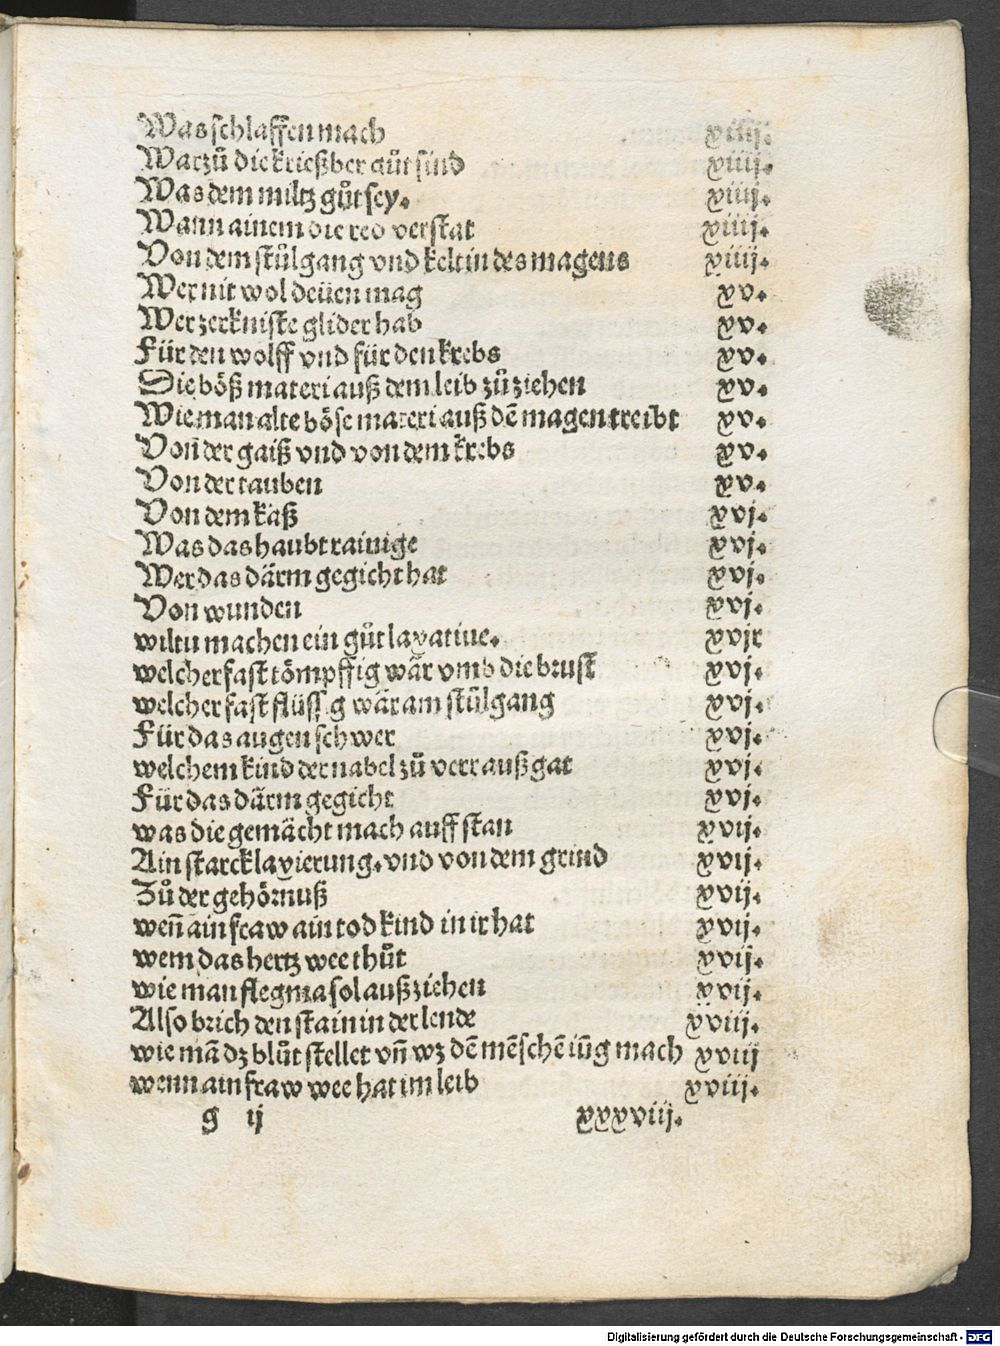 Was schlaffen mach xiiij.
Warzů die krießber gůt sind xiiij.
Was dem miltz gůt sey. xiiij.
Wann ainem die red verstat xiiij.
Von dem stůlgang vnd kelt in des magens xiiij.
Wer nit wol deüen mag xv.
Wer zerkniste glider hab xv.
Für den wolff vnd für den krebs xv.
Die böß materi auß dem leib zů ziehen xv.
Wie man alte böse materi auß dē magen treibt xv.
Von der gaiß vnd von dem krebs xv.
Von der tauben xv.
Von dem käß xvj.
Was das haubt rainige xvj.
Wer das därm gegicht hat xvj.
Von wunden xvj.
wiltu machen ein gůt laxatiue. xvjr
welcher fast tömpffig wär vmb die brust xvj.
welcher fast flüssig wär am stůlgang xvj.
Für das augen schwer xvj.
welchem kind der nabel zů verr auß gat xvj.
Für das därm gegicht xvj.
was die gemächt mach auff stan xvij.
Ain starck laxierung. vnd von dem grind xvij.
Zů der gehörnuß xvij.
weñ ain fraw ain tod kind in ir hat xvij.
wem das hertz wee thůt xvij.
wie man flegma sol auß ziehen xvij.
Also brich den stain in der lende xviij.
wie mā dz blůt stellet vñ wz dē mēschē iūg mach xviij
wenn ain fraw wee hat im leib xviij.
g ij xxxviij.
Digitalisierung gefördert durch die Deutsche Forschungsgemeinschaft - DFG